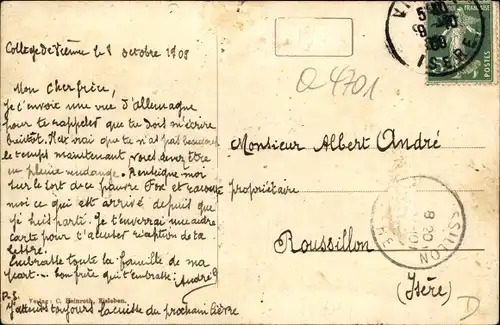 Collège de Vienne le 8 octobre 1909
Mon cher frère,
Je t'envoie une vue d'allemagne
pour te rappeler que tu dois m'écrire
bientôt. Il est vrai que tu n'as pas beaucoup
le temps maintenant vous devez être
en pleine vendange. Renseigne moi
sur le sort de ce pauvre Fox et raconte
moi ce qui est arrivé depuis que
je suis parti. Je t'enverrai une autre
carte pour t'accuser réception de ta
lettre.
Embrasse toute la famille de ma
part. Ton frère qui t'embrasse: André
P.S.
J'attends toujours la cuisse du prochain lièvre
Verlag: C. Heinroth, Eisleben.
Q 4701
Monsieur Albert André
propriétaire
Roussillon
(Isère)
D
ISERE
POSTES
SSILLON
8 20